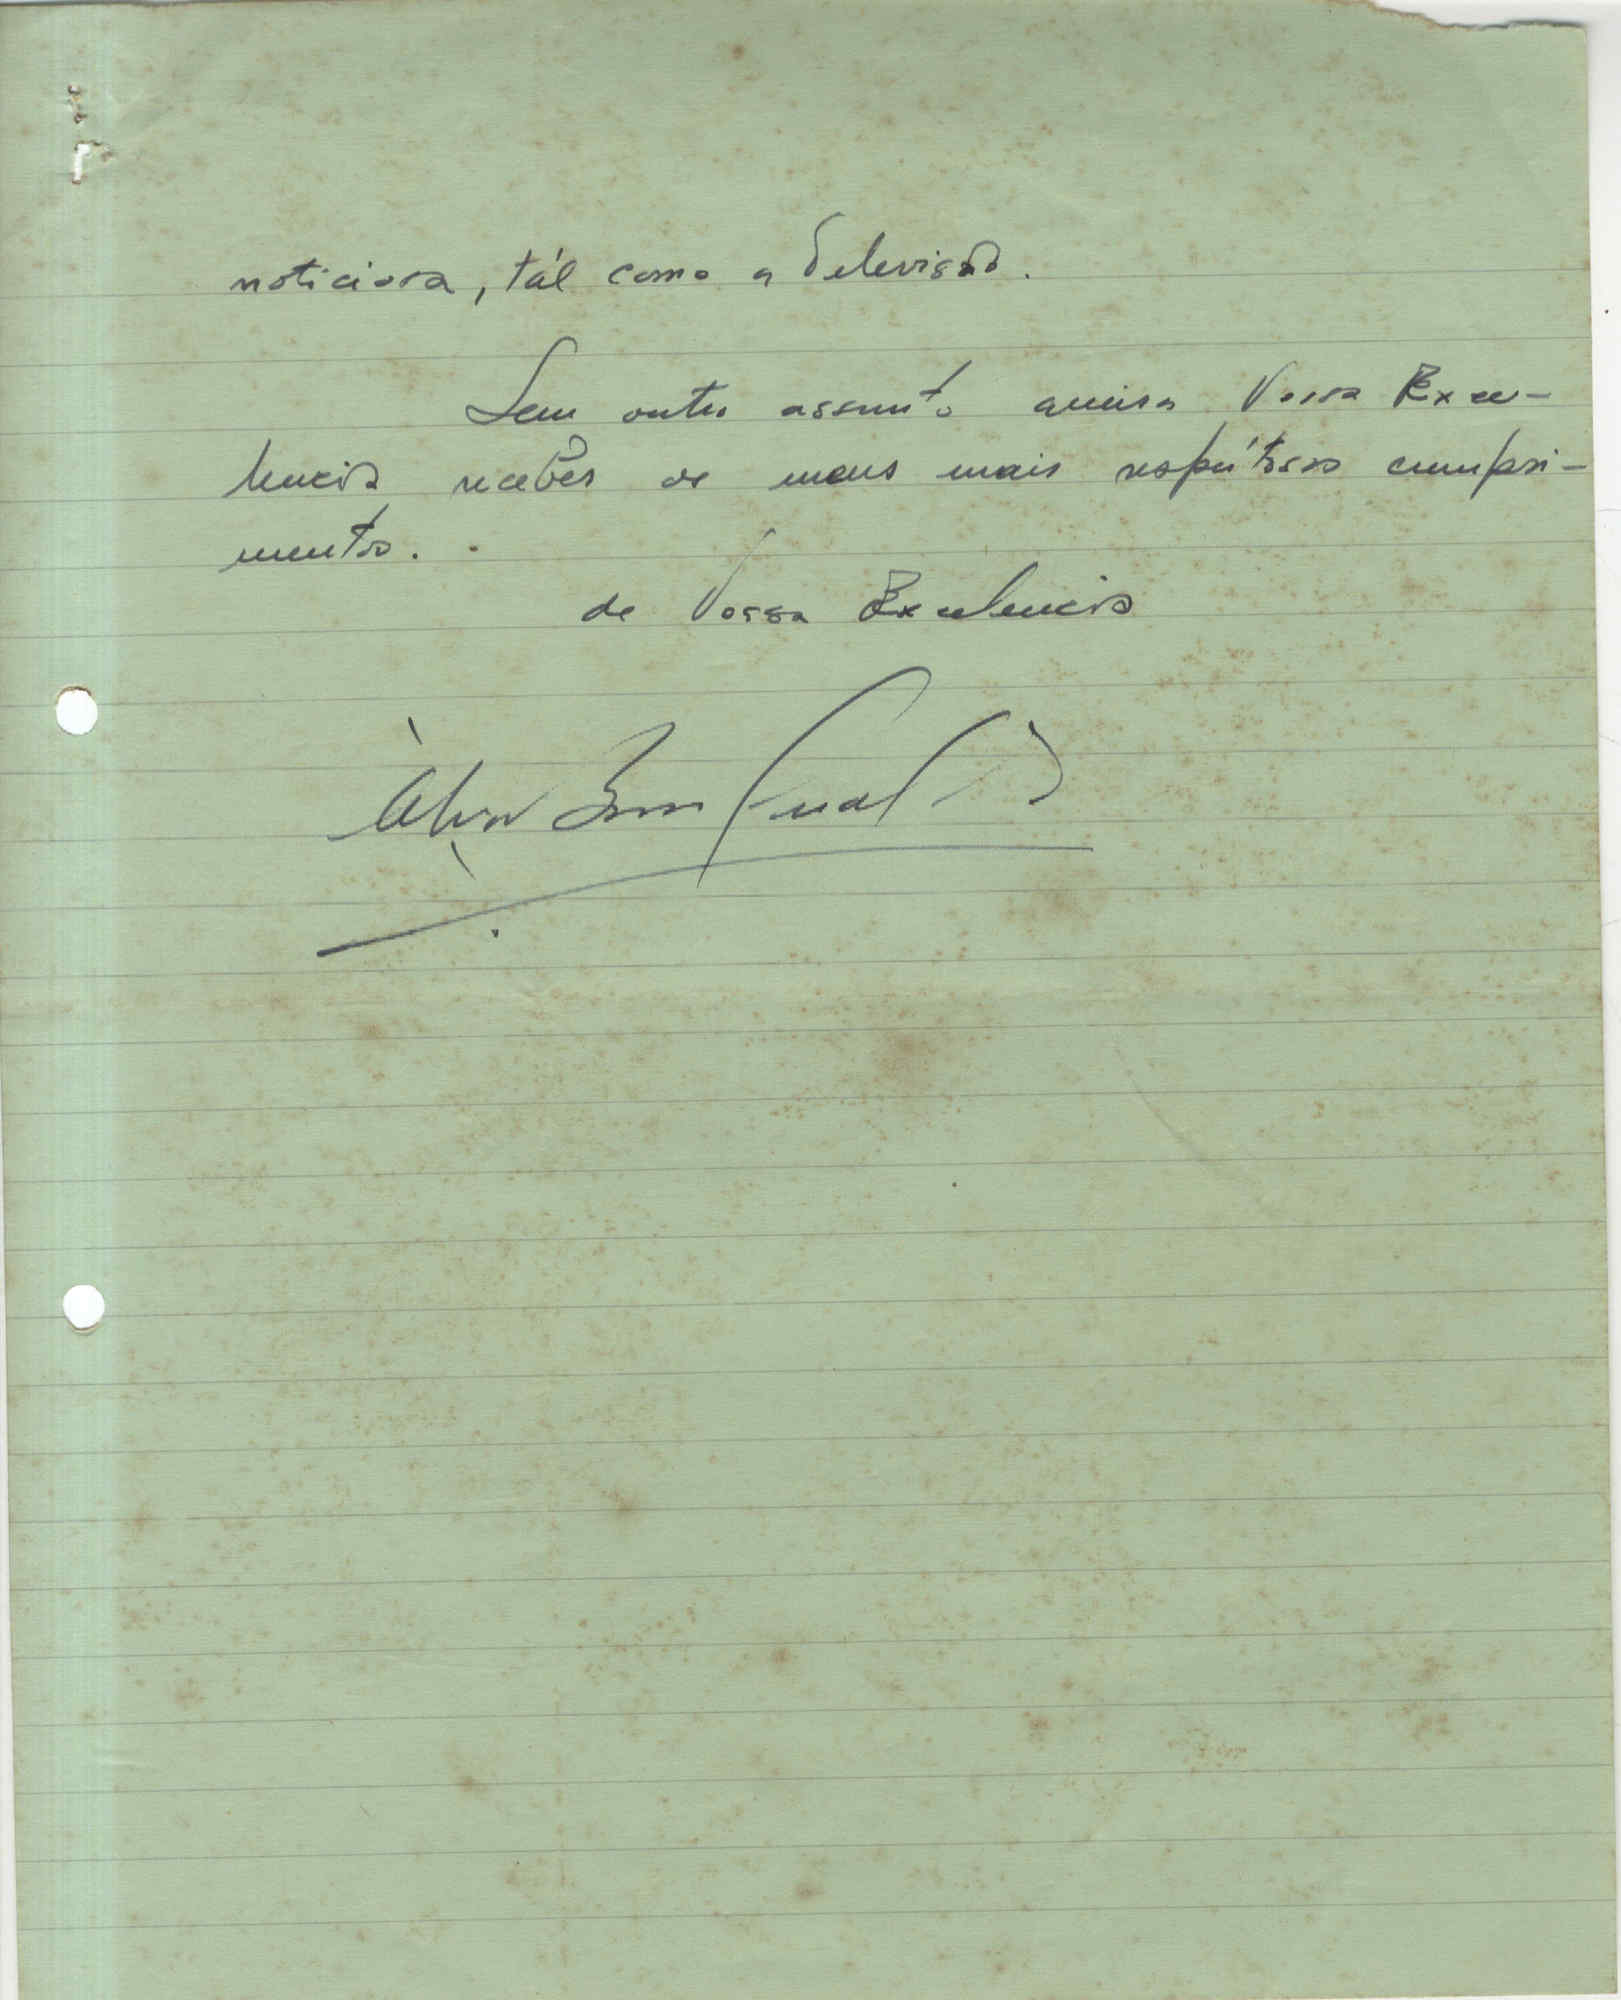 noticiosa, tál como a Televisão.
Sem outro assunto queira Vossa Exce-
lencia receber os meus mais respeitosos cumpri-
mentos.
de Vossa Excelencia